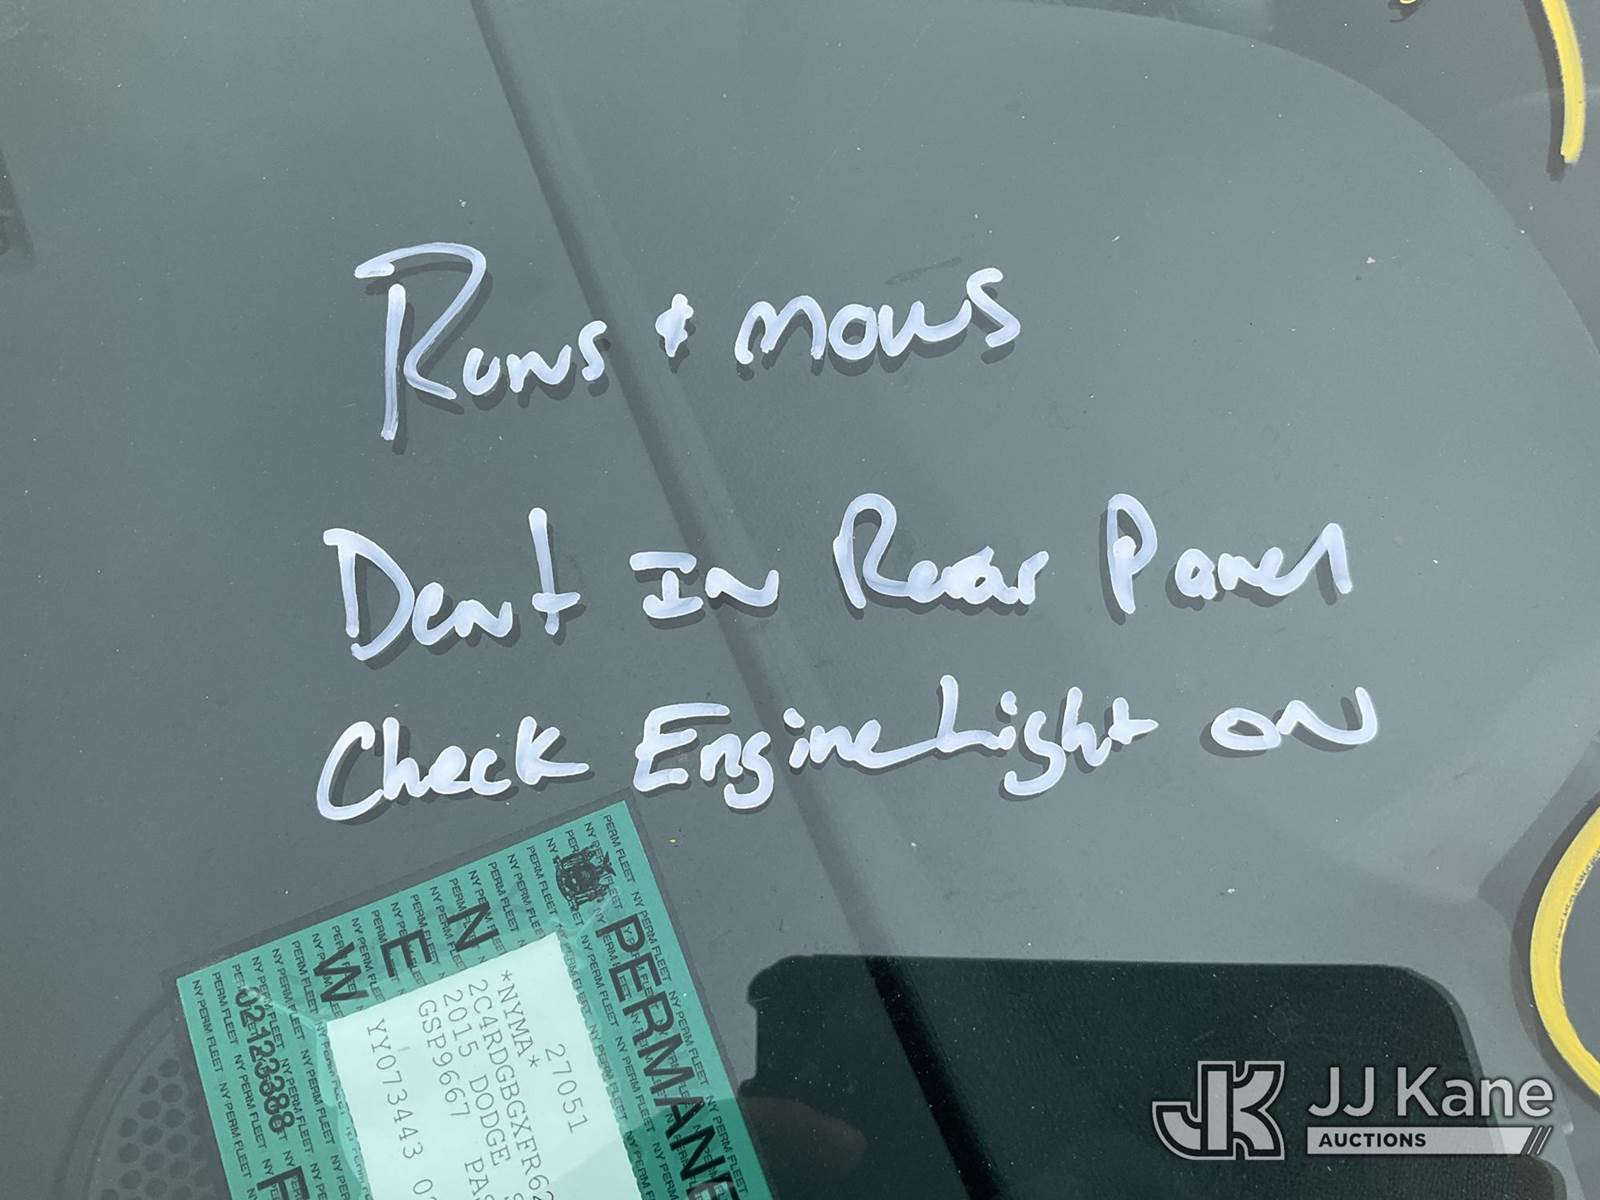 Runs + mous
Dent In Rear Panel
Check Engine Light on
PERMANE
NEW
NY PERM FLEET
02123388
27051
*NYMA*
2C4RDGBGXFR62
2015 DODGE
GSP9667 PAS
YY073443
JJ Kane
AUCTIONS